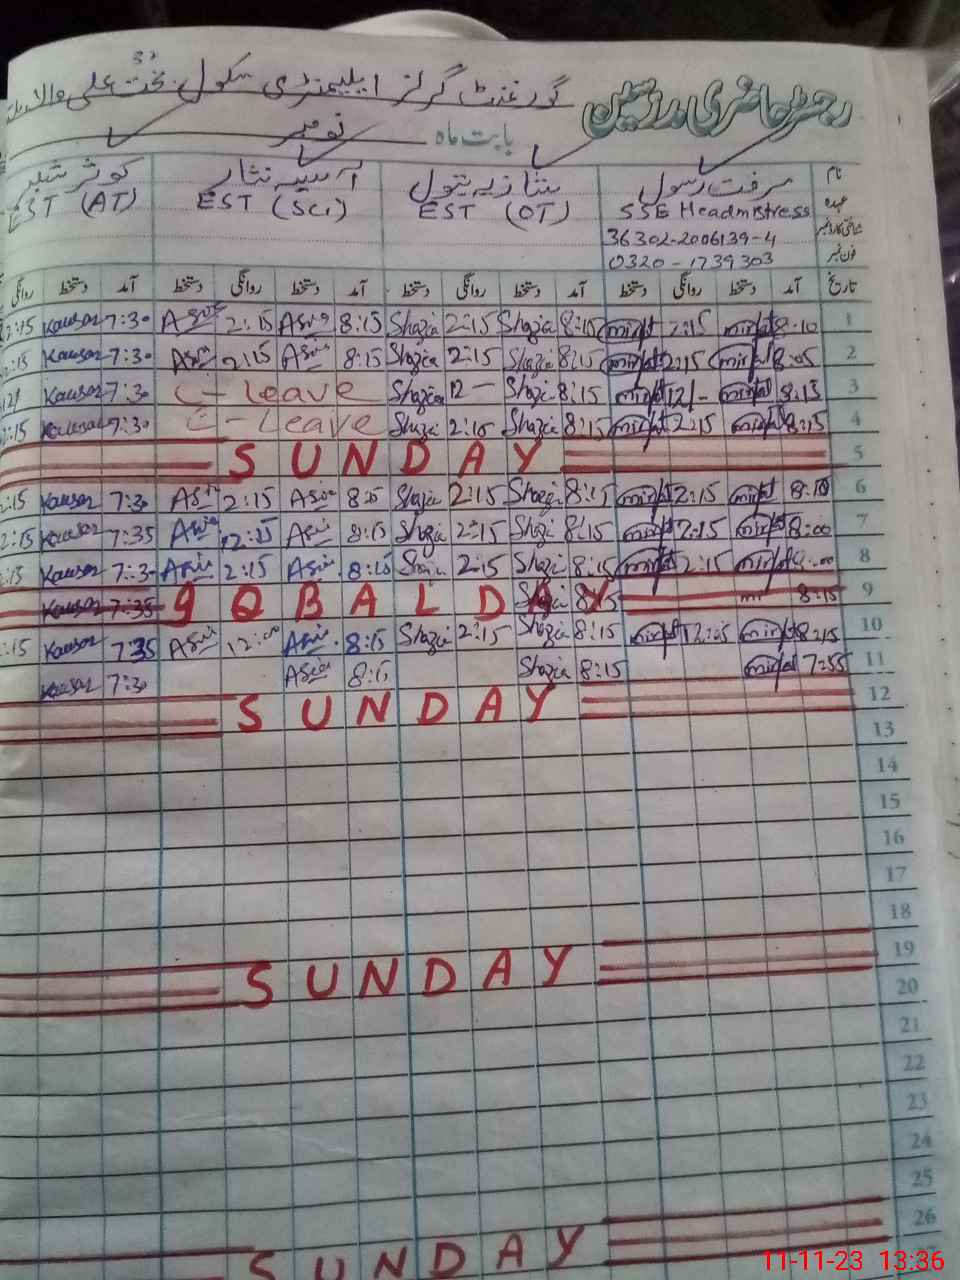 رجسٹر حاضری مدرسین گورنمنٹ گرلز ایلیمنٹری سکول بخت علی والا
بابت ماہ نومبر
نام شازیہ بتول آسیہ نثار کوثر
عہدہ SSE Headmistress EST (OT) EST (Sci) EST (AT)
36302-2006139-4
فون نمبر 0320-1739303
تاریخ آمد دستخط روانگی دستخط آمد دستخط روانگی دستخط آمد دستخط روانگی دستخط آمد دستخط روانگی
2:15 Kausar 7:30 Asia 2:15 Asia 8:15 Shazia 2:15 Shazia 8:15 2:15 8:10 1
2:15 Kausar 7:30 Asia 2:15 Asia 8:15 Shazia 2:15 Shazia 8:15 2:15 8:05 2
Kausar 7:30 C-Leave Shazia 12- Shazia 8:15 12/- 8:15 3
2:15 Kausar 7:30 C-Leave Shazia 2:15 Shazia 8:15 2:15 8:15 4
SUNDAY 5
2:15 Kausar 7:30 Asia 2:15 Asia Shazia 2:15 Shazia 8:15 2:15 8:10 6
2:15 Kausar 7:35 Asia 2:15 Asia 8:15 Shazia 2:15 Shazia 8:15 2:15 8:00 7
2:15 Kausar 7:30 Asia 2:15 Asia 8:15 Shazia 2:15 Shazia 8:15 2:15 8
Kausar 7:35 9QBAL DAY 8:15 9
2:15 Kausar 7:35 Asia 12:00 Asia 8:15 Shazia 2:15 Shazia 8:15 8:15 10
Kausar 7:30 Asia 8:15 Shazia 8:15 7:55 11
SUNDAY 12
13
14
15
16
17
18
SUNDAY 19
20
21
22
23
24
25
SUNDAY 26
27
11-11-23 13:36